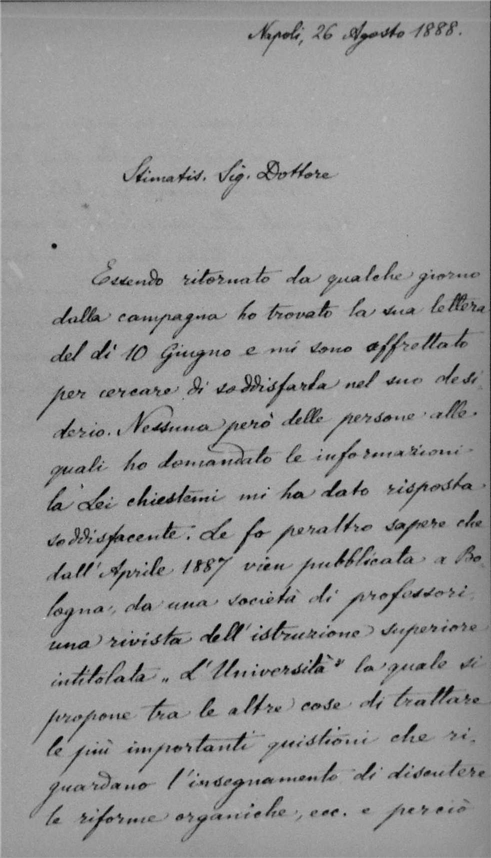 Napoli, 26 Agosto 1888.
Stimatis. Sig. Dottore
Essendo ritornato da qualche giorno
dalla campagna ho trovato la sua lettera
del dì 10 Giugno e mi sono affrettato
per cercare di soddisfarla nel suo desi-
derio. Nessuna però delle persone alle
quali ho domandato le informazioni
la Lei chiestemi mi ha dato risposta
soddisfacente. Le fo peraltro sapere che
dall'Aprile 1887 vien pubblicata a Bo-
logna, da una società di professori,
una rivista dell'istruzione superiore
intitolata „L'Università" la quale si
propone tra le altre cose di trattare
le più importanti quistioni che ri-
guardano l'insegnamento di discutere
le riforme organiche, ecc. e perciò